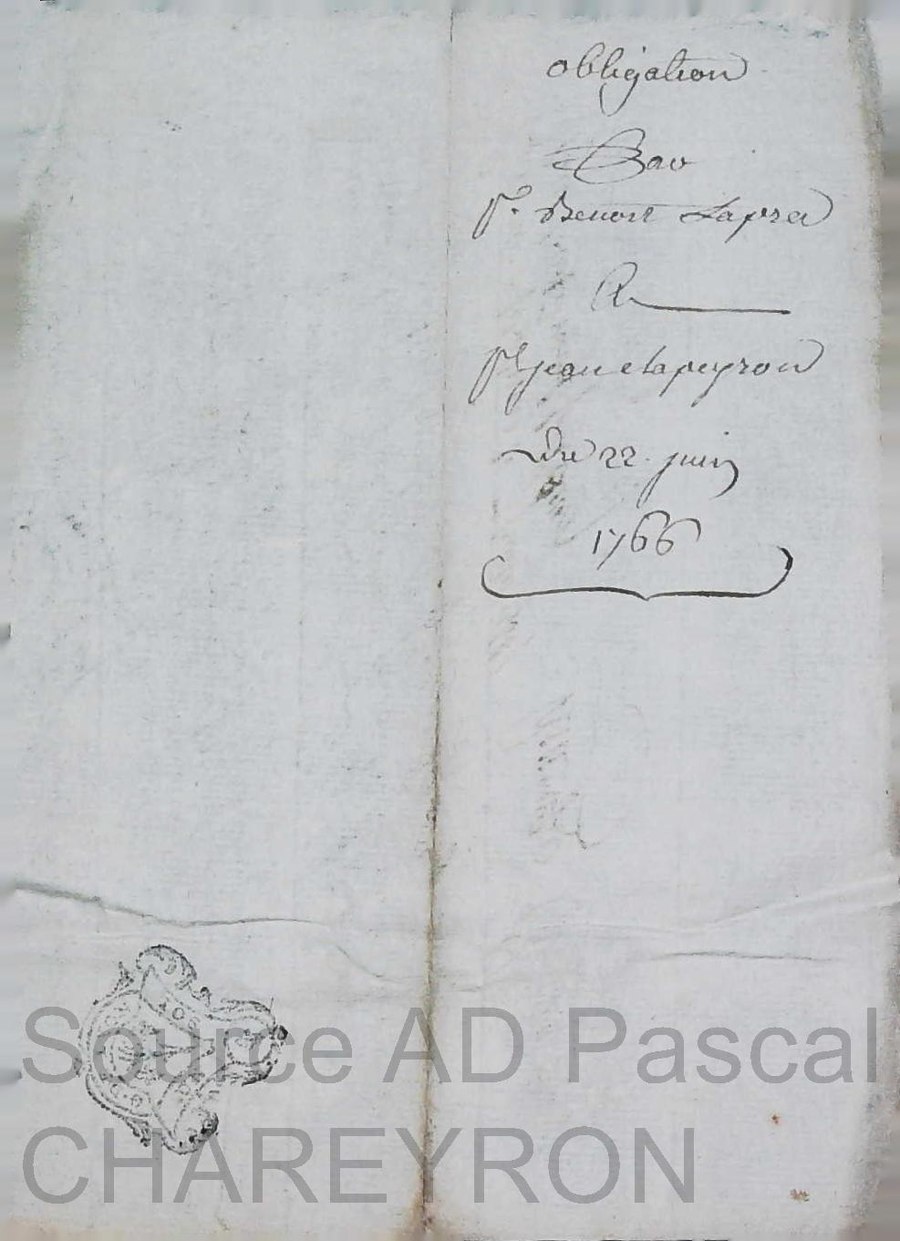 obligation
Par
Sr. Benoit Lapra
A
Sr jean chapeyron
Du 22 juin
1766
Source AD Pascal
CHAREYRON